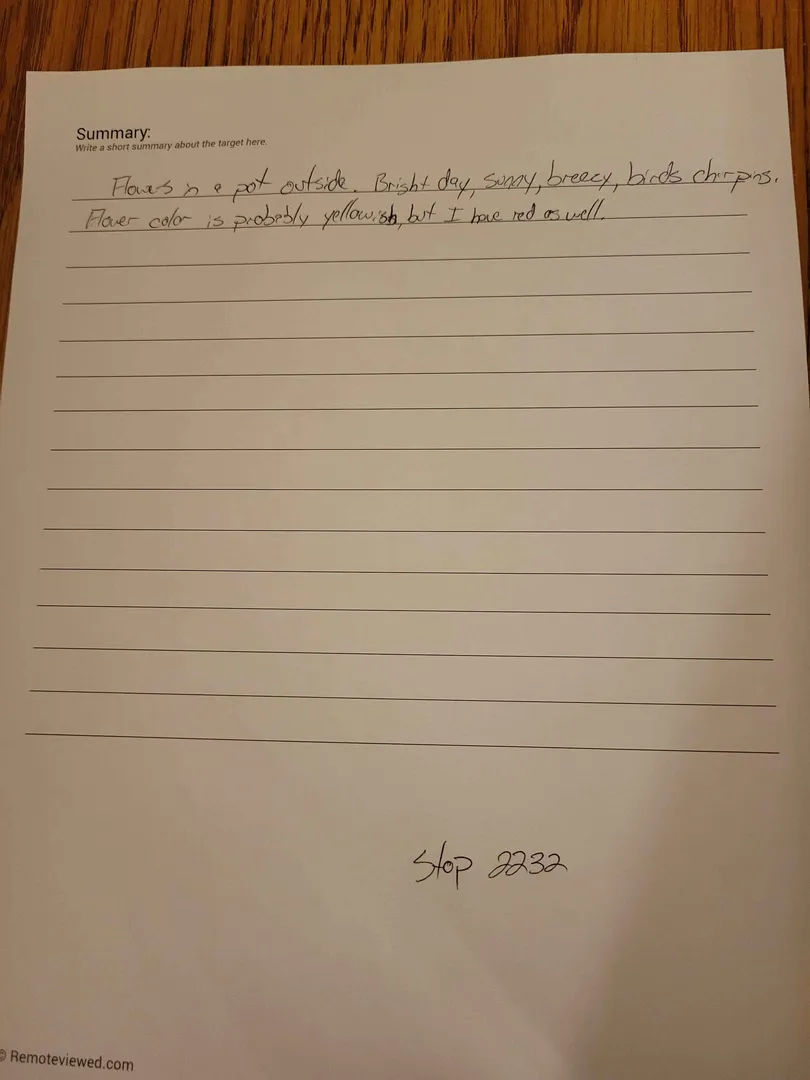 Summary:
Write a short summary about the target here.
Flowers in a pot outside. Bright day, sunny, breezy, birds chirping.
Flower color is probably yellowish, but I have red as well.
Stop 2232
© Remoteviewed.com